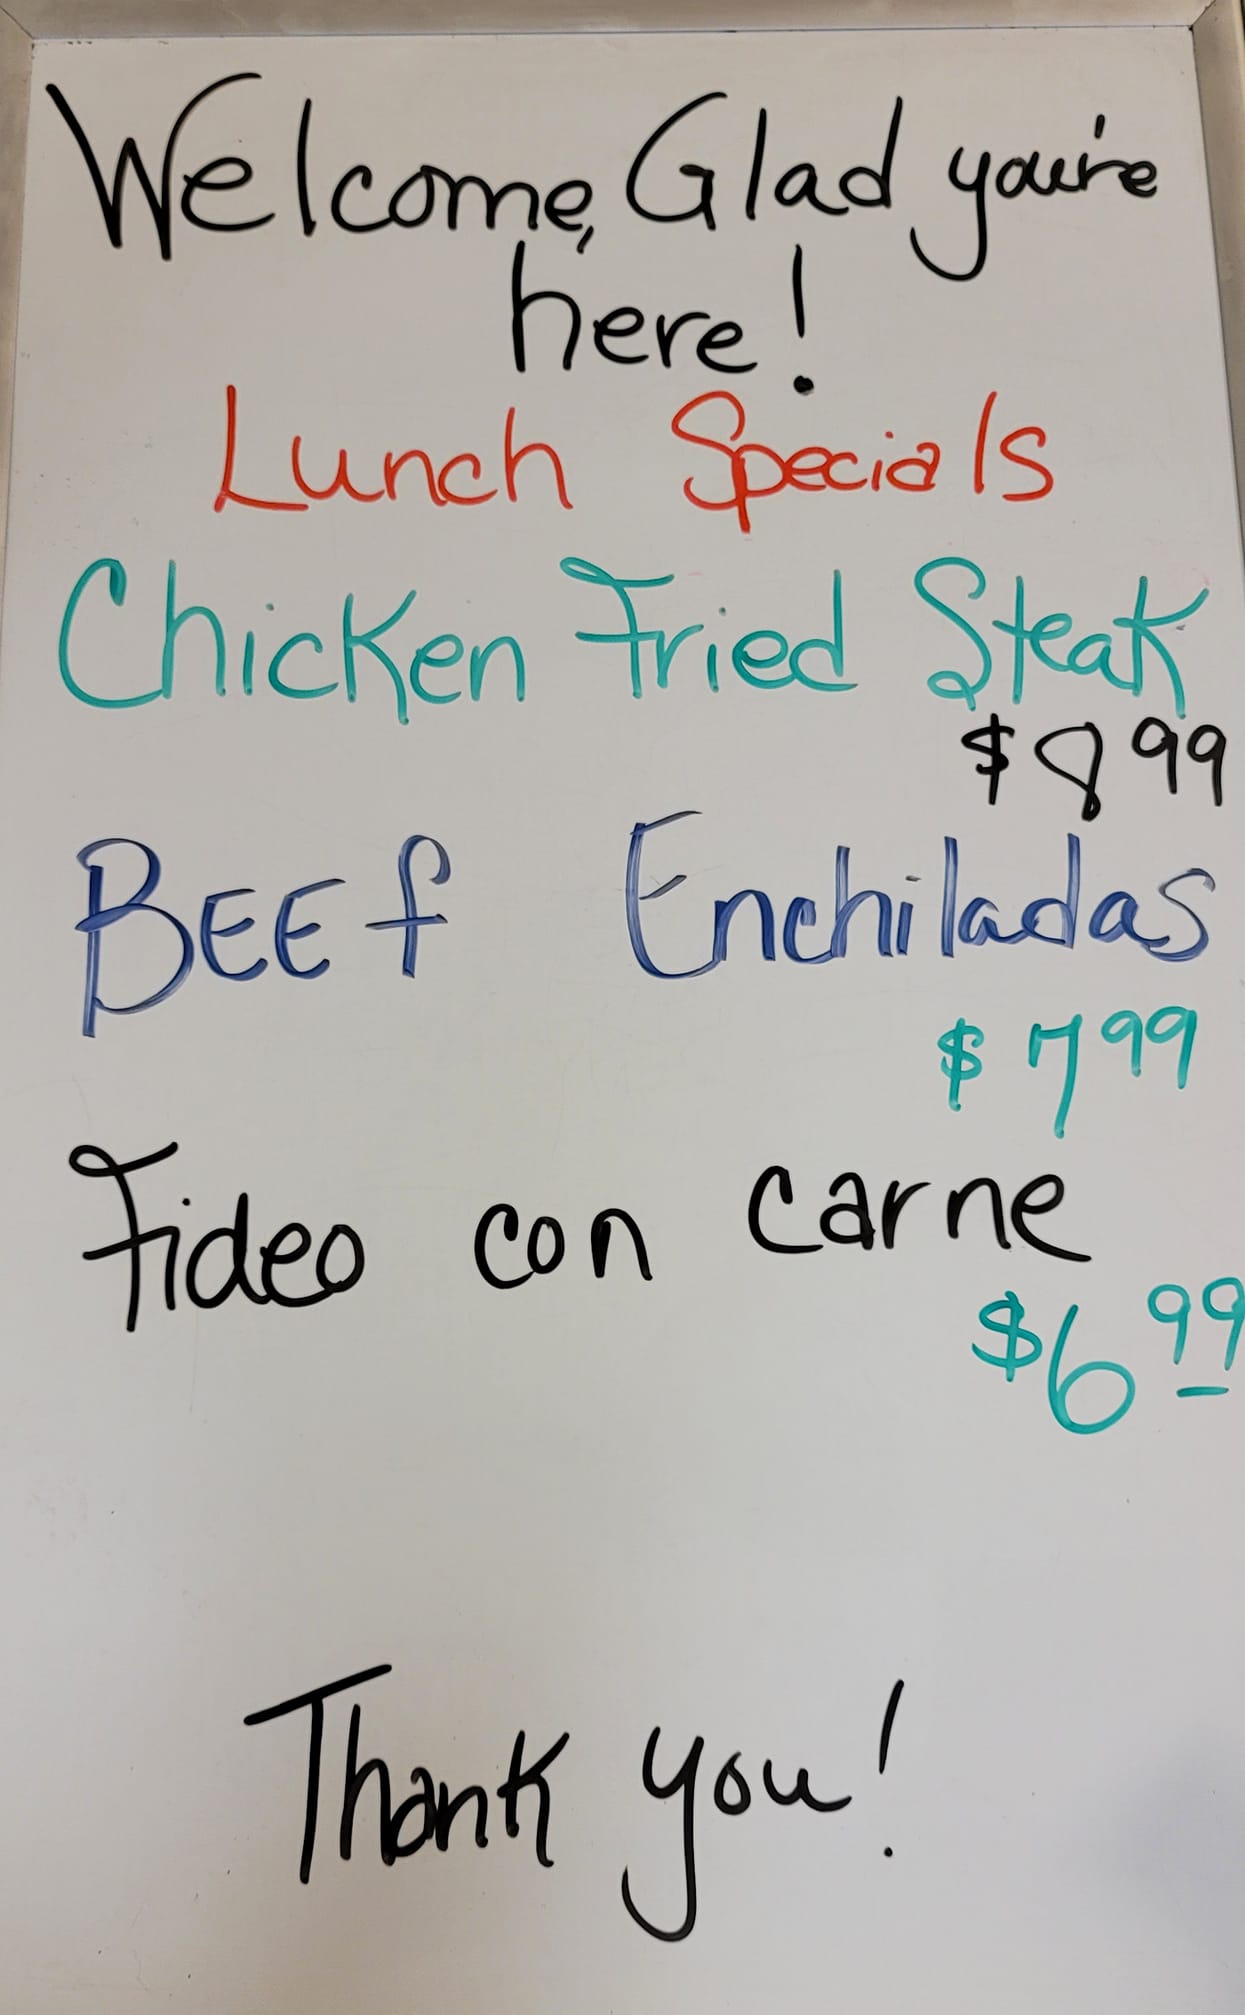 Welcome, Glad you're
here!
Lunch Specials
Chicken Fried Steak
$8 99
BEEf Enchiladas
$7 99
Fideo con carne
$6 99
Thank you!